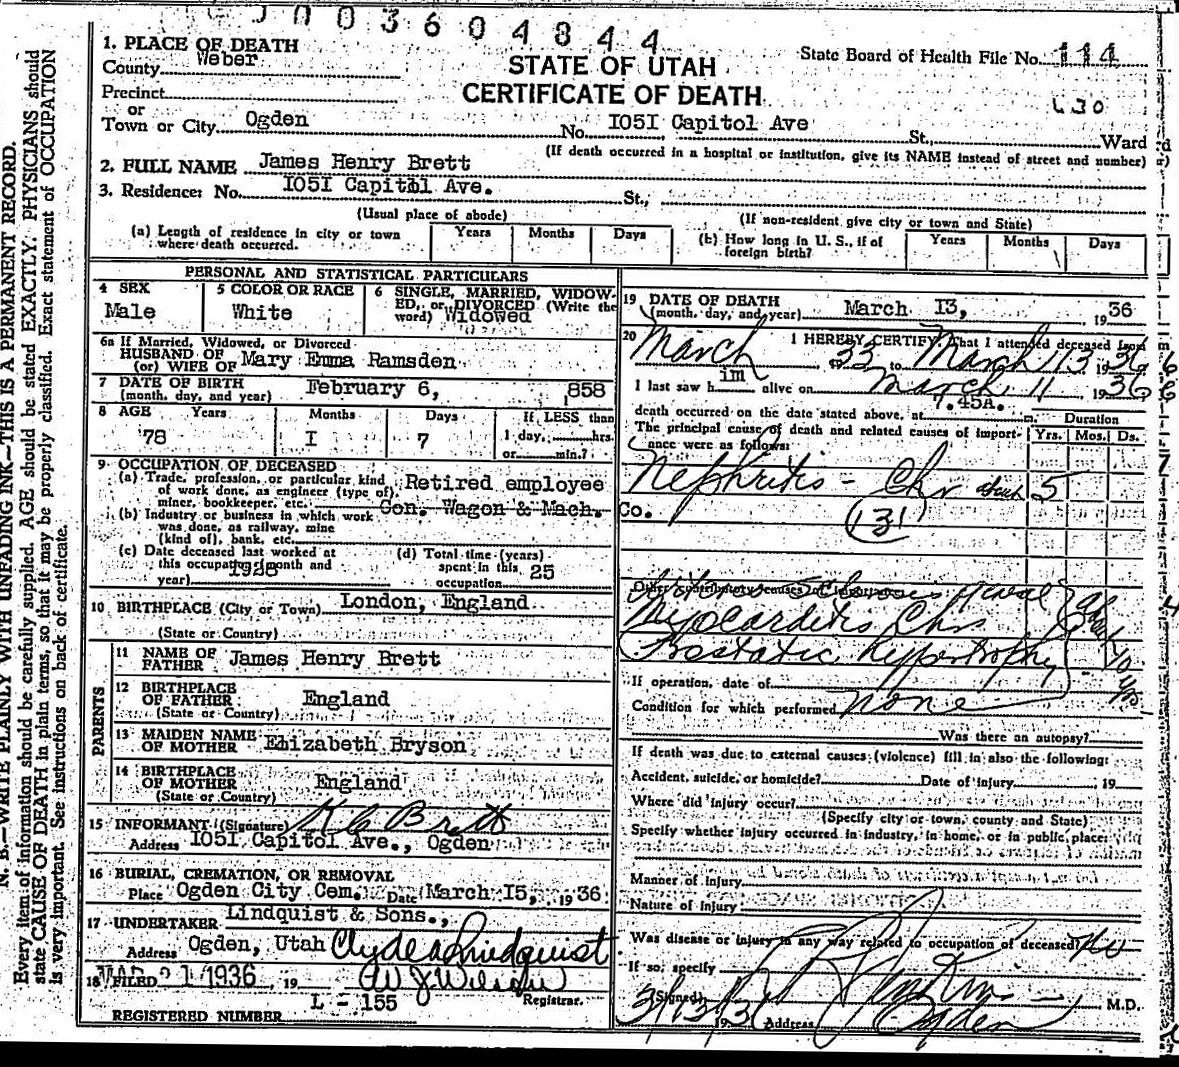 003604844
1. PLACE OF DEATH
County Weber
Precinct
or
Town or City Ogden No. 1051 Capitol Ave St., Ward
STATE OF UTAH
CERTIFICATE OF DEATH
State Board of Health File No. 114
(If death occurred in a hospital or institution, give its NAME instead of street and number)
2. FULL NAME James Henry Brett
3. Residence: No. I05I Capitol Ave. St.,
(Usual place of abode)
(If non-resident give city or town and State)
(a) Length of residence in city or town where death occurred. Years Months Days
(b) How long in U. S., if of foreign birth? Years Months Days
PERSONAL AND STATISTICAL PARTICULARS
4 SEX Male
5 COLOR OR RACE White
6 SINGLE, MARRIED, WIDOWED, or DIVORCED (Write the word) Widowed
6a If Married, Widowed, or Divorced
HUSBAND OF
(or) WIFE OF Mary Emma Ramsden
7 DATE OF BIRTH
(month, day, and year) February 6, 1858
8 AGE Years 78 Months I Days 7
If LESS than
1 day, hrs.
or min.?
9 OCCUPATION OF DECEASED
(a) Trade, profession, or particular kind of work done, as engineer (type of), miner, bookkeeper, etc. Retired employee
(b) Industry or business in which work was done, as railway, mine (kind of), bank, etc. Con. Wagon & Mach. Co.
(c) Date deceased last worked at this occupation (month and year) 1928
(d) Total time (years) spent in this occupation 25
10 BIRTHPLACE (City or Town) London, England
(State or Country)
PARENTS
11 NAME OF FATHER James Henry Brett
12 BIRTHPLACE OF FATHER England
(State or Country)
13 MAIDEN NAME OF MOTHER Elizabeth Bryson
14 BIRTHPLACE OF MOTHER England
(State or Country)
15 INFORMANT (Signature) Brett
Address I05I Capitol Ave., Ogden
16 BURIAL, CREMATION, OR REMOVAL
Place Ogden City Cem. Date March I5, 1936
17 UNDERTAKER Lindquist & Sons.,
Address Ogden, Utah Clyde A Lindquist
18 FILED MAR 21 1936, 19 W J Wilson
Registrar.
L - 155
REGISTERED NUMBER
19 DATE OF DEATH
(month, day, and year) March I3, 1936
20 I HEREBY CERTIFY, That I attended deceased from
March, 33 to March 13 1936
I last saw him alive on March 11, 1936
death occurred on the date stated above, at 7.45A. m.
The principal cause of death and related causes of importance were as follows:
Duration
Yrs. Mos. Ds.
Nephritis - Chr about 5
(131)
Other contributory causes of importance:
Myocarditis Chr
Prostatic Hypertrophy
about 10 yrs
If operation, date of
Condition for which performed none
Was there an autopsy?
If death was due to external causes (violence) fill in also the following:
Accident, suicide, or homicide? Date of injury 19
Where did injury occur?
(Specify city or town, county and State)
Specify whether injury occurred in industry, in home, or in public place:
Manner of injury
Nature of injury
Was disease or injury in any way related to occupation of deceased? No
If so, specify
(Signed) M.D.
3/13/1936 Address Ogden
N. B.—WRITE PLAINLY WITH UNFADING INK—THIS IS A PERMANENT RECORD.
Every item of information should be carefully supplied. AGE should be stated EXACTLY. PHYSICIANS should
state CAUSE OF DEATH in plain terms, so that it may be properly classified. Exact statement of OCCUPATION
is very important. See instructions on back of certificate.